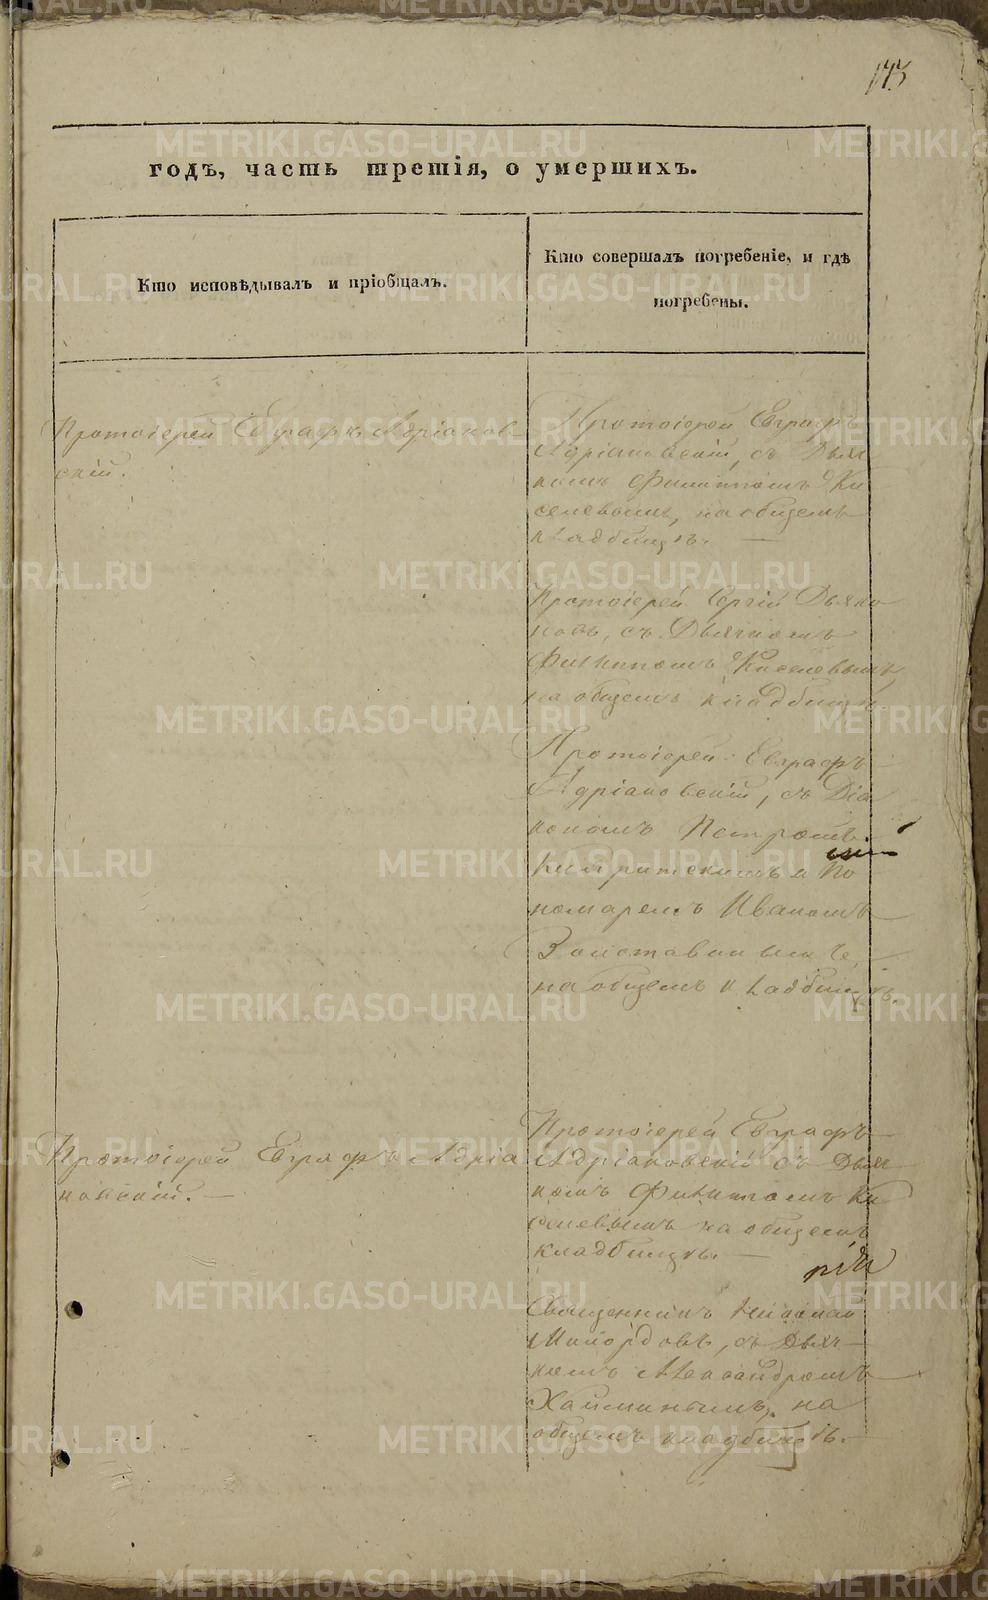 годъ, часть третія, о умершихъ.
Кто исповѣдывалъ и пріобщалъ.
Кто совершалъ погребеніе, и гдѣ
погребены.
Протоіерей Евграфъ Адріанов-
скій.
Протоіерей Евграфъ
Адріановскій, съ Дьяч
комъ Филиппомъ Ки
селевымъ, на общемъ
кладбищѣ. —
Протоіерей Сергій Дьяко
новъ, съ Дьячкомъ
Филиппомъ Киселевымъ,
на общемъ кладбищѣ.
Протоіерей Евграфъ
Адріановскій, съ Діа
кономъ Петромъ
и По
номаремъ Иваномъ
на общемъ кладбищѣ.
Протоіерей Евграфъ Адріа
новскій. —
Протоіерей Евграфъ
Адріановскій съ Дьяч
комъ Филиппомъ Ки
селевымъ на общемъ
кладбищѣ. —
Священникъ Николай
съ Дьяч-
комъ Александромъ
на
общемъ кладбищѣ. —
METRIKI.GASO-URAL.RU